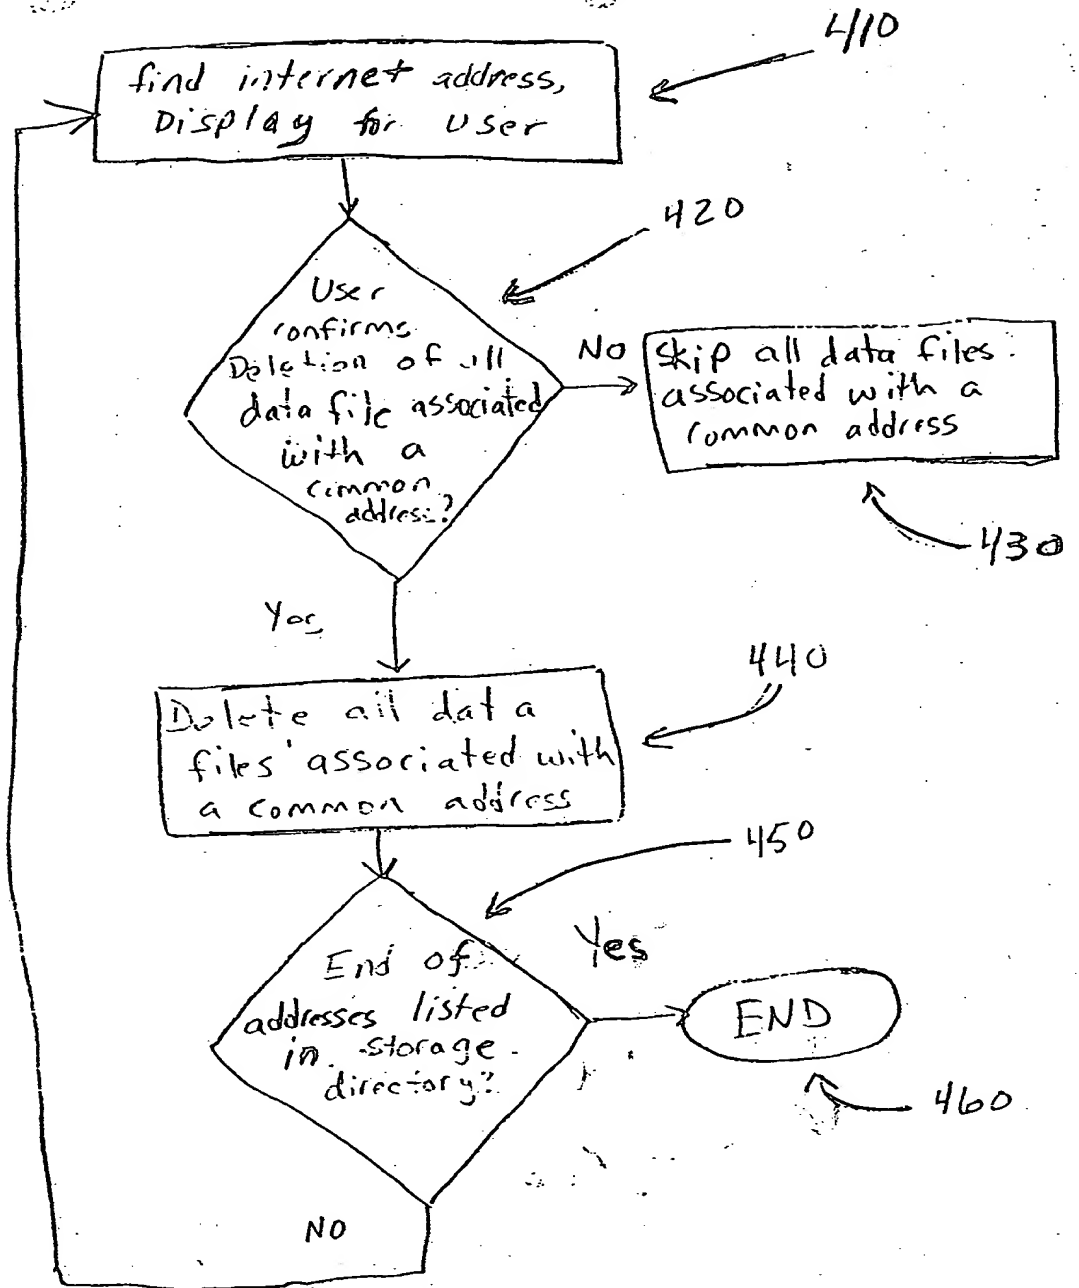 410
find internet address,
Display for user
420
User
confirms
Deletion of all
data file associated
with a
common
address?
No
Skip all data files
associated with a
common address
430
Yes
440
Delete all data
files associated with
a common address
450
End of
addresses listed
in storage
directory?
Yes
END
460
NO